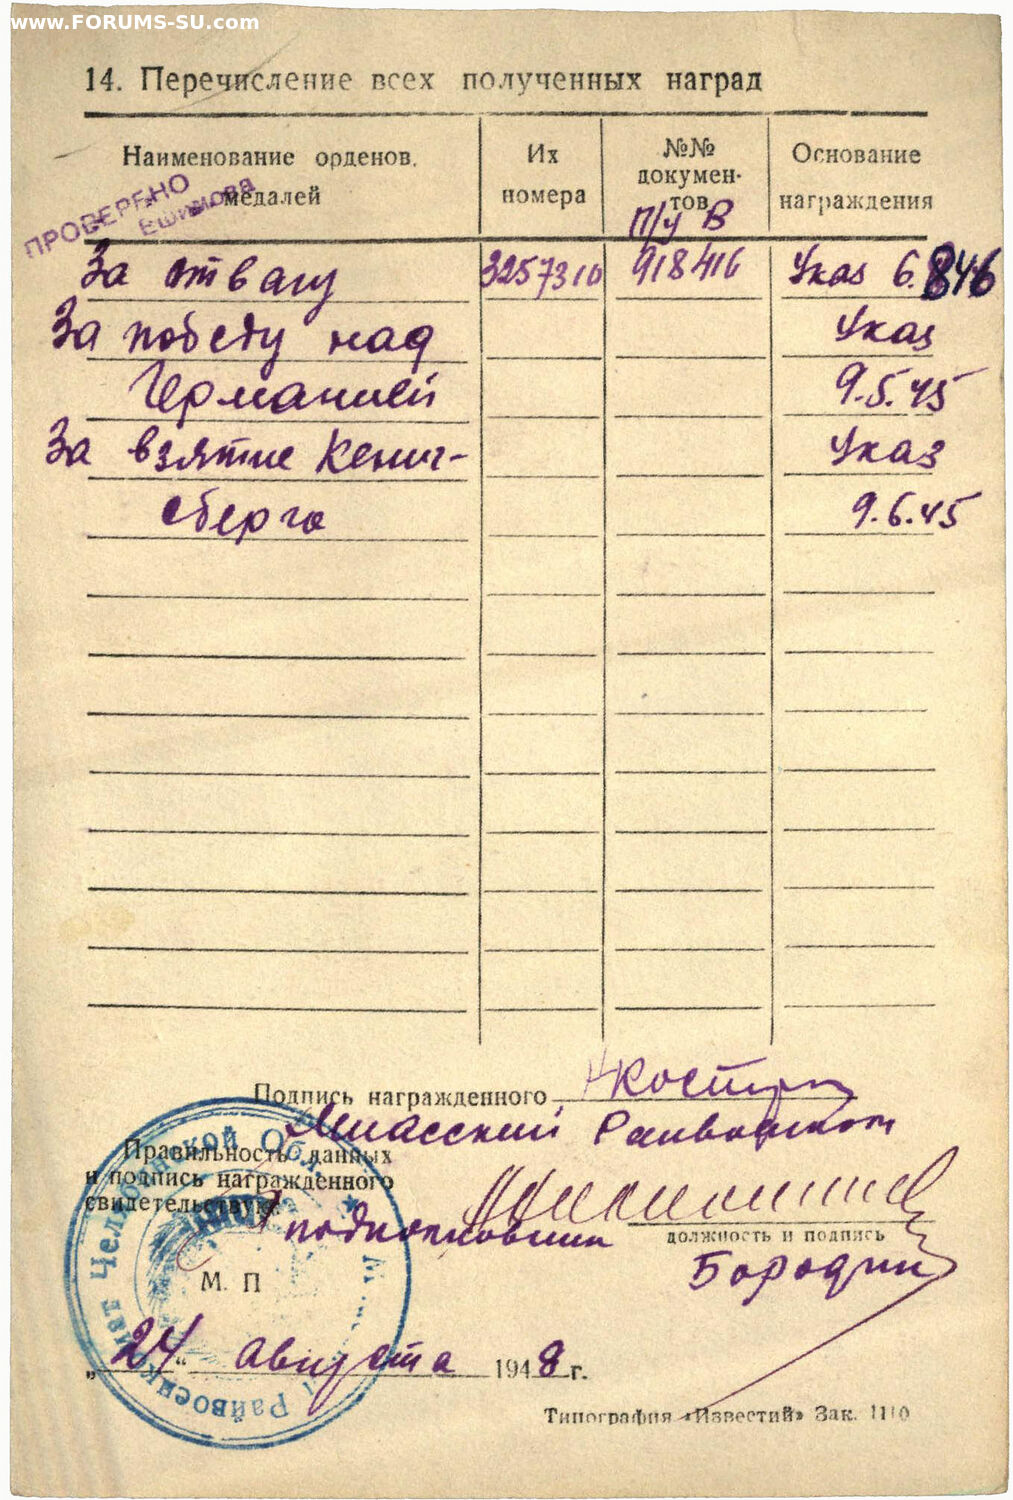 www.FORUMS-SU.com
14. Перечисление всех полученных наград
Наименование орденов, медалей
Их номера
№№ докумен-тов
Основание награждения
ПРОВЕРЕНО
Ешимова
п/у В
За отвагу 3257310 918416 Указ 6.846
За победу над Указ
Германией 9.5.45
За взятие Кениг- Указ
сберга 9.6.45
Подпись награжденного Костр
Миасский Райвоенком
Правильность данных
и подпись награжденного
свидетельствую:
подполковник
должность и подпись
Бородин
М. П
„24“ августа 1948 г.
Райвоенкомат Челябинской Обл.
Типография «Известий» Зак. 1110